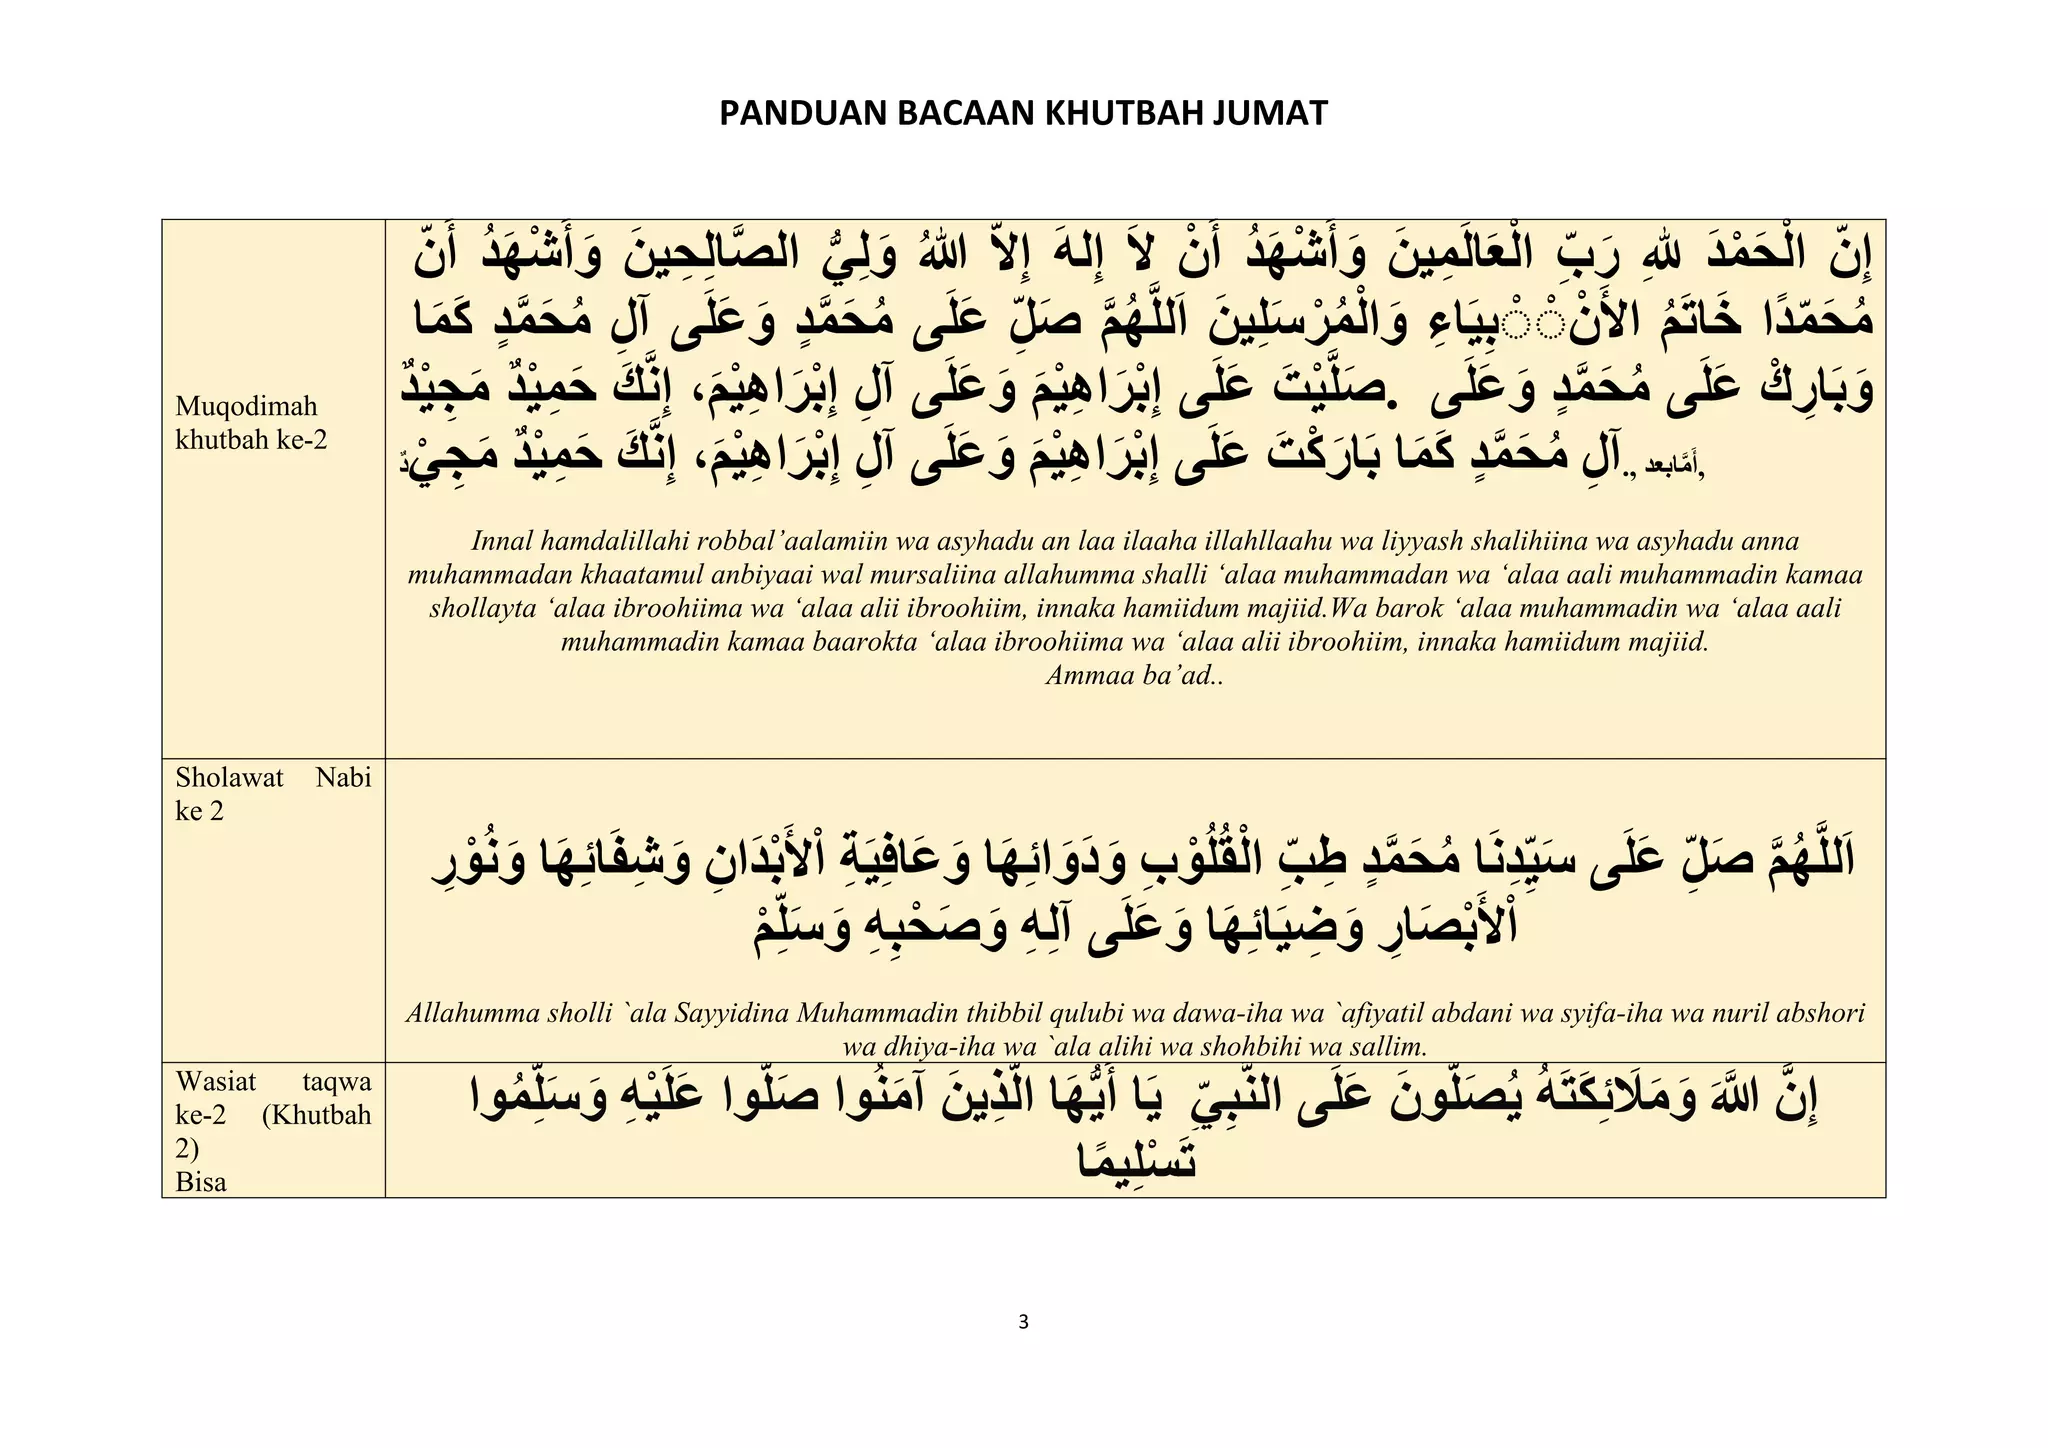 PANDUAN BACAAN KHUTBAH JUMAT
Muqodimah
khutbah ke-2
إِنّ الْحَمْدَ للهِ رَبِّ الْعَالَمِينَ وَأَشْهَدُ أَنْ لاَ إِلهَ إِلاّ اللهُ وَلِيُّ الصَّالِحِينَ وَأَشْهَدُ أَنّ
مُحَمّدًا خَاتَمُ الأَنْ ْ ْبِيَاءِ وَالْمُرْسَلِينَ اَللَّهُمَّ صَلِّ عَلَى مُحَمَّدٍ وَعَلَى آلِ مُحَمَّدٍ كَمَا
وَبَارِكْ عَلَى مُحَمَّدٍ وَعَلَى .صَلَّيْتَ عَلَى إِبْرَاهِيْمَ وَعَلَى آلِ إِبْرَاهِيْمَ، إِنَّكَ حَمِيْدٌ مَجِيْدٌ
,أَمَّابعد ,.آلِ مُحَمَّدٍ كَمَا بَارَكْتَ عَلَى إِبْرَاهِيْمَ وَعَلَى آلِ إِبْرَاهِيْمَ، إِنَّكَ حَمِيْدٌ مَجِيْدٌ
Innal hamdalillahi robbal’aalamiin wa asyhadu an laa ilaaha illahllaahu wa liyyash shalihiina wa asyhadu anna
muhammadan khaatamul anbiyaai wal mursaliina allahumma shalli ‘alaa muhammadan wa ‘alaa aali muhammadin kamaa
shollayta ‘alaa ibroohiima wa ‘alaa alii ibroohiim, innaka hamiidum majiid.Wa barok ‘alaa muhammadin wa ‘alaa aali
muhammadin kamaa baarokta ‘alaa ibroohiima wa ‘alaa alii ibroohiim, innaka hamiidum majiid.
Ammaa ba’ad..
Sholawat Nabi
ke 2
اَللَّهُمَّ صَلِّ عَلَى سَيِّدِنَا مُحَمَّدٍ طِبِّ الْقُلُوْبِ وَدَوَائِهَا وَعَافِيَةِ اْلأَبْدَانِ وَشِفَائِهَا وَنُوْرِ
اْلأَبْصَارِ وَضِيَائِهَا وَعَلَى آلِهِ وَصَحْبِهِ وَسَلِّمْ
Allahumma sholli `ala Sayyidina Muhammadin thibbil qulubi wa dawa-iha wa `afiyatil abdani wa syifa-iha wa nuril abshori
wa dhiya-iha wa `ala alihi wa shohbihi wa sallim.
Wasiat taqwa
ke-2 (Khutbah
2)
Bisa
إِنَّ اللَّهَ وَمَلَائِكَتَهُ يُصَلُّونَ عَلَى النَّبِيِّ يَا أَيُّهَا الَّذِينَ آمَنُوا صَلُّوا عَلَيْهِ وَسَلِّمُوا
تَسْلِيمًا
3